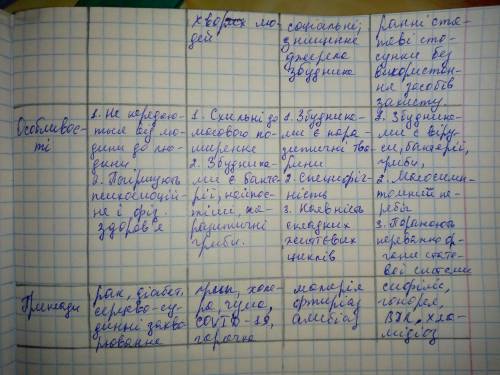 хворих лю-
дей
соціальні;
знищення
джерела
збудника
ранні ста-
теві сто-
сунки без
використан-
ня засобів
захисту.
Особливос-
ті
1. Не передаю-
ться від лю-
дини до лю-
дини
2. Погіршують
психоемоцій-
не і фіз.
здоров'я
1. Схильні до
масового по-
ширення
2. Збудника-
ми є бакте-
рії, найпрос-
тіші, па-
разитичні
гриби.
1. Збудника-
ми є пара-
зитичні тва-
рини
2. Специфіч-
ність
3. Наявність
складних
життєвих
циклів
1. Збудника-
ми є віру-
си, бактерії,
гриби,
2. Малосимп-
томний пе-
ребіг
3. Поражають
переважно ор-
гани стате-
вої системи
Приклади
рак, діабет,
серцево-су-
динні захво-
рювання
грип, холе-
ра, чума,
COVID-19,
гарячка
малярія
фтиріаз
амебіаз
сифіліс,
гонорея,
ВІЛ, хла-
мідіоз